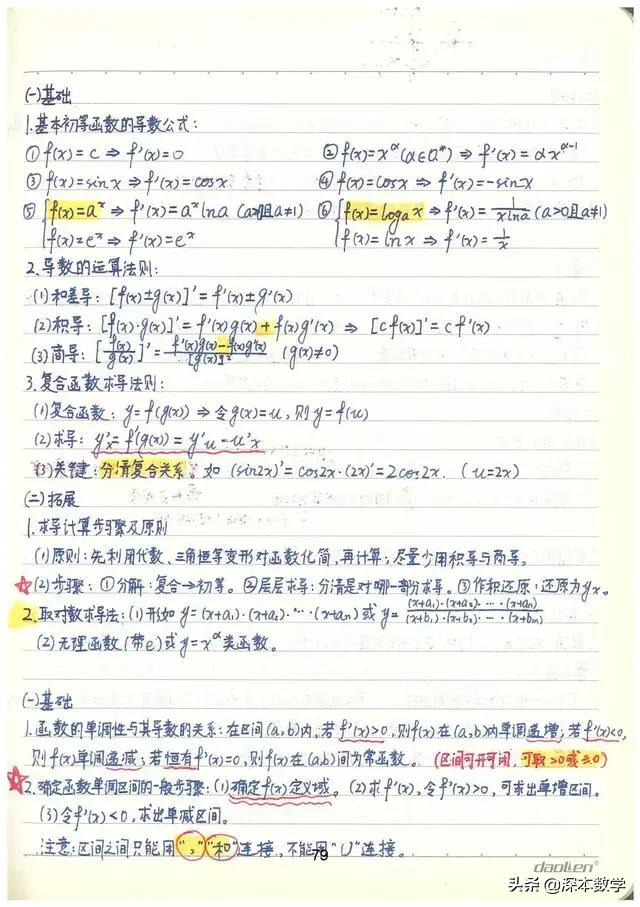 (一)基础
1.基本初等函数的导数公式:
① f(x)=c ⇒ f'(x)=0 ② f(x)=x^α(α∈Q*) ⇒ f'(x)=αx^(α-1)
③ f(x)=sinx ⇒ f'(x)=cosx ④ f(x)=cosx ⇒ f'(x)=-sinx
⑤ {f(x)=a^x ⇒ f'(x)=a^x lna (a>0且a≠1) ⑥ {f(x)=logₐx ⇒ f'(x)=1/(xlna) (a>0且a≠1)
f(x)=e^x ⇒ f'(x)=e^x f(x)=lnx ⇒ f'(x)=1/x
2.导数的运算法则:
(1)和差导:[f(x)±g(x)]'=f'(x)±g'(x)
(2)积导:[f(x)·g(x)]'=f'(x)g(x)+f(x)g'(x) ⇒ [cf(x)]'=cf'(x)
(3)商导:[f(x)/g(x)]'=(f'(x)g(x)-f(x)g'(x))/[g(x)]² (g(x)≠0)
3.复合函数求导法则:
(1)复合函数:y=f(g(x)) ⇒ 令g(x)=u,则y=f(u)
(2)求导:y'x=f'(g(x))=y'u-u'x
(3)关键:分清复合关系。如 (sin2x)'=cos2x·(2x)'=2cos2x.(u=2x)
(二)拓展
1.求导计算步骤及原则
(1)原则:先利用代数、三角恒等变形对函数化简,再计算;尽量少用积导与商导。
☆(2)步骤:①分解:复合→初等。②层层求导:分清是对哪一部分求导。③作积还原:还原为yx。
2.取对数求导法:(1)形如 y=(x+a₁)·(x+a₂)·…·(x+aₙ)或 y=((x+a₁)·(x+a₂)·…·(x+aₙ))/((x+b₁)·(x+b₂)·…·(x+bₘ))
(2)无理函数(带e)或y=x^α类函数。
(一)基础
1.函数的单调性与其导数的关系:在区间(a,b)内,若f'(x)>0,则f(x)在(a,b)内单调递增;若f'(x)<0,
则f(x)单调递减;若恒有f'(x)=0,则f(x)在(a,b)间为常函数。(区间可开可闭,可取>0或≥0)
☆2.确定函数单调区间的一般步骤:(1)确定f(x)定义域。(2)求f'(x),令f'(x)>0,可求出单增区间。
(3)令f'(x)<0,求出单减区间。
注意:区间之间只能用","“和”连接,不能用“∪”连接。
79
daolen®
头条@深本数学